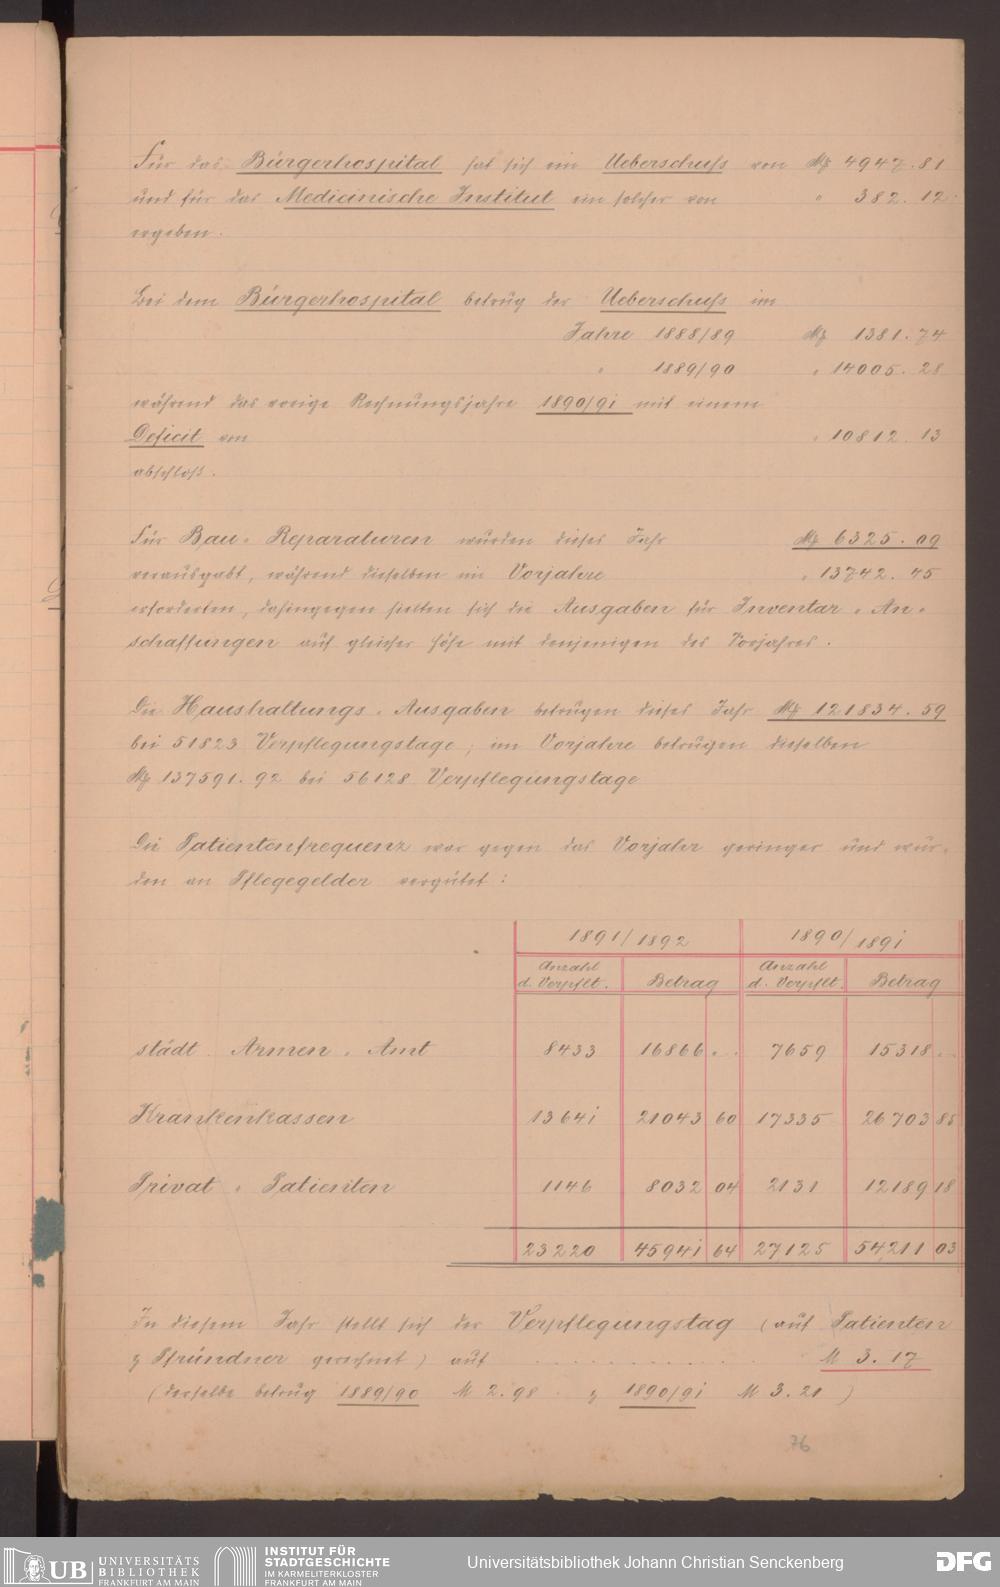 Für das Bürgerhospital hat sich ein Ueberschuss von Mk 4947.81
und für das Medicinische Institut ein solcher von " 382.12
ergeben.
Bei dem Bürgerhospital betrug der Ueberschuss im
Jahre 1888/89 Mk 1381.74
" 1889/90 " 14005.28
während das vorige Rechnungsjahre 1890/91 mit einem
Deficit von " 10812.13
abschloß.
Für Bau-Reparaturen wurden dieses Jahr Mk 6325.09
verausgabt, während dieselben im Vorjahre " 13742.45
erforderten, dahingegen hielten sich die Ausgaben für Inventar-An-
schaffungen auf gleicher Höhe mit denjenigen des Vorjahres.
Die Haushaltungs-Ausgaben betrugen dieses Jahr Mk 121834.59
bei 51823 Verpflegungstage, im Vorjahre betrugen dieselben
Mk 137591.92 bei 56128 Verpflegungstage
Die Patientenfrequenz war gegen das Vorjahr geringer und wur-
den an Pflegegelder vergütet:
1891/1892 1890/1891
Anzahl d. Verpflt. Betrag Anzahl d. Verpflt. Betrag
städt. Armen-Amt 8433 16866 . - 7659 15318 . -
Krankenkassen 13641 21043 60 17335 26703 85
Privat-Patienten 1146 8032 04 2131 12189 18
23220 45941 64 27125 54211 03
In diesem Jahr stellt sich der Verpflegungstag (auf Patienten
& Pfründner gerechnet) auf . . . . . . . . . . . . M 3.17
(derselbe betrug 1889/90 M 2.98 & 1890/91 M 3.21)
76
UB UNIVERSITÄTS
BIBLIOTHEK
FRANKFURT AM MAIN
INSTITUT FÜR
STADTGESCHICHTE
IM KARMELITERKLOSTER
FRANKFURT AM MAIN
Universitätsbibliothek Johann Christian Senckenberg
DFG